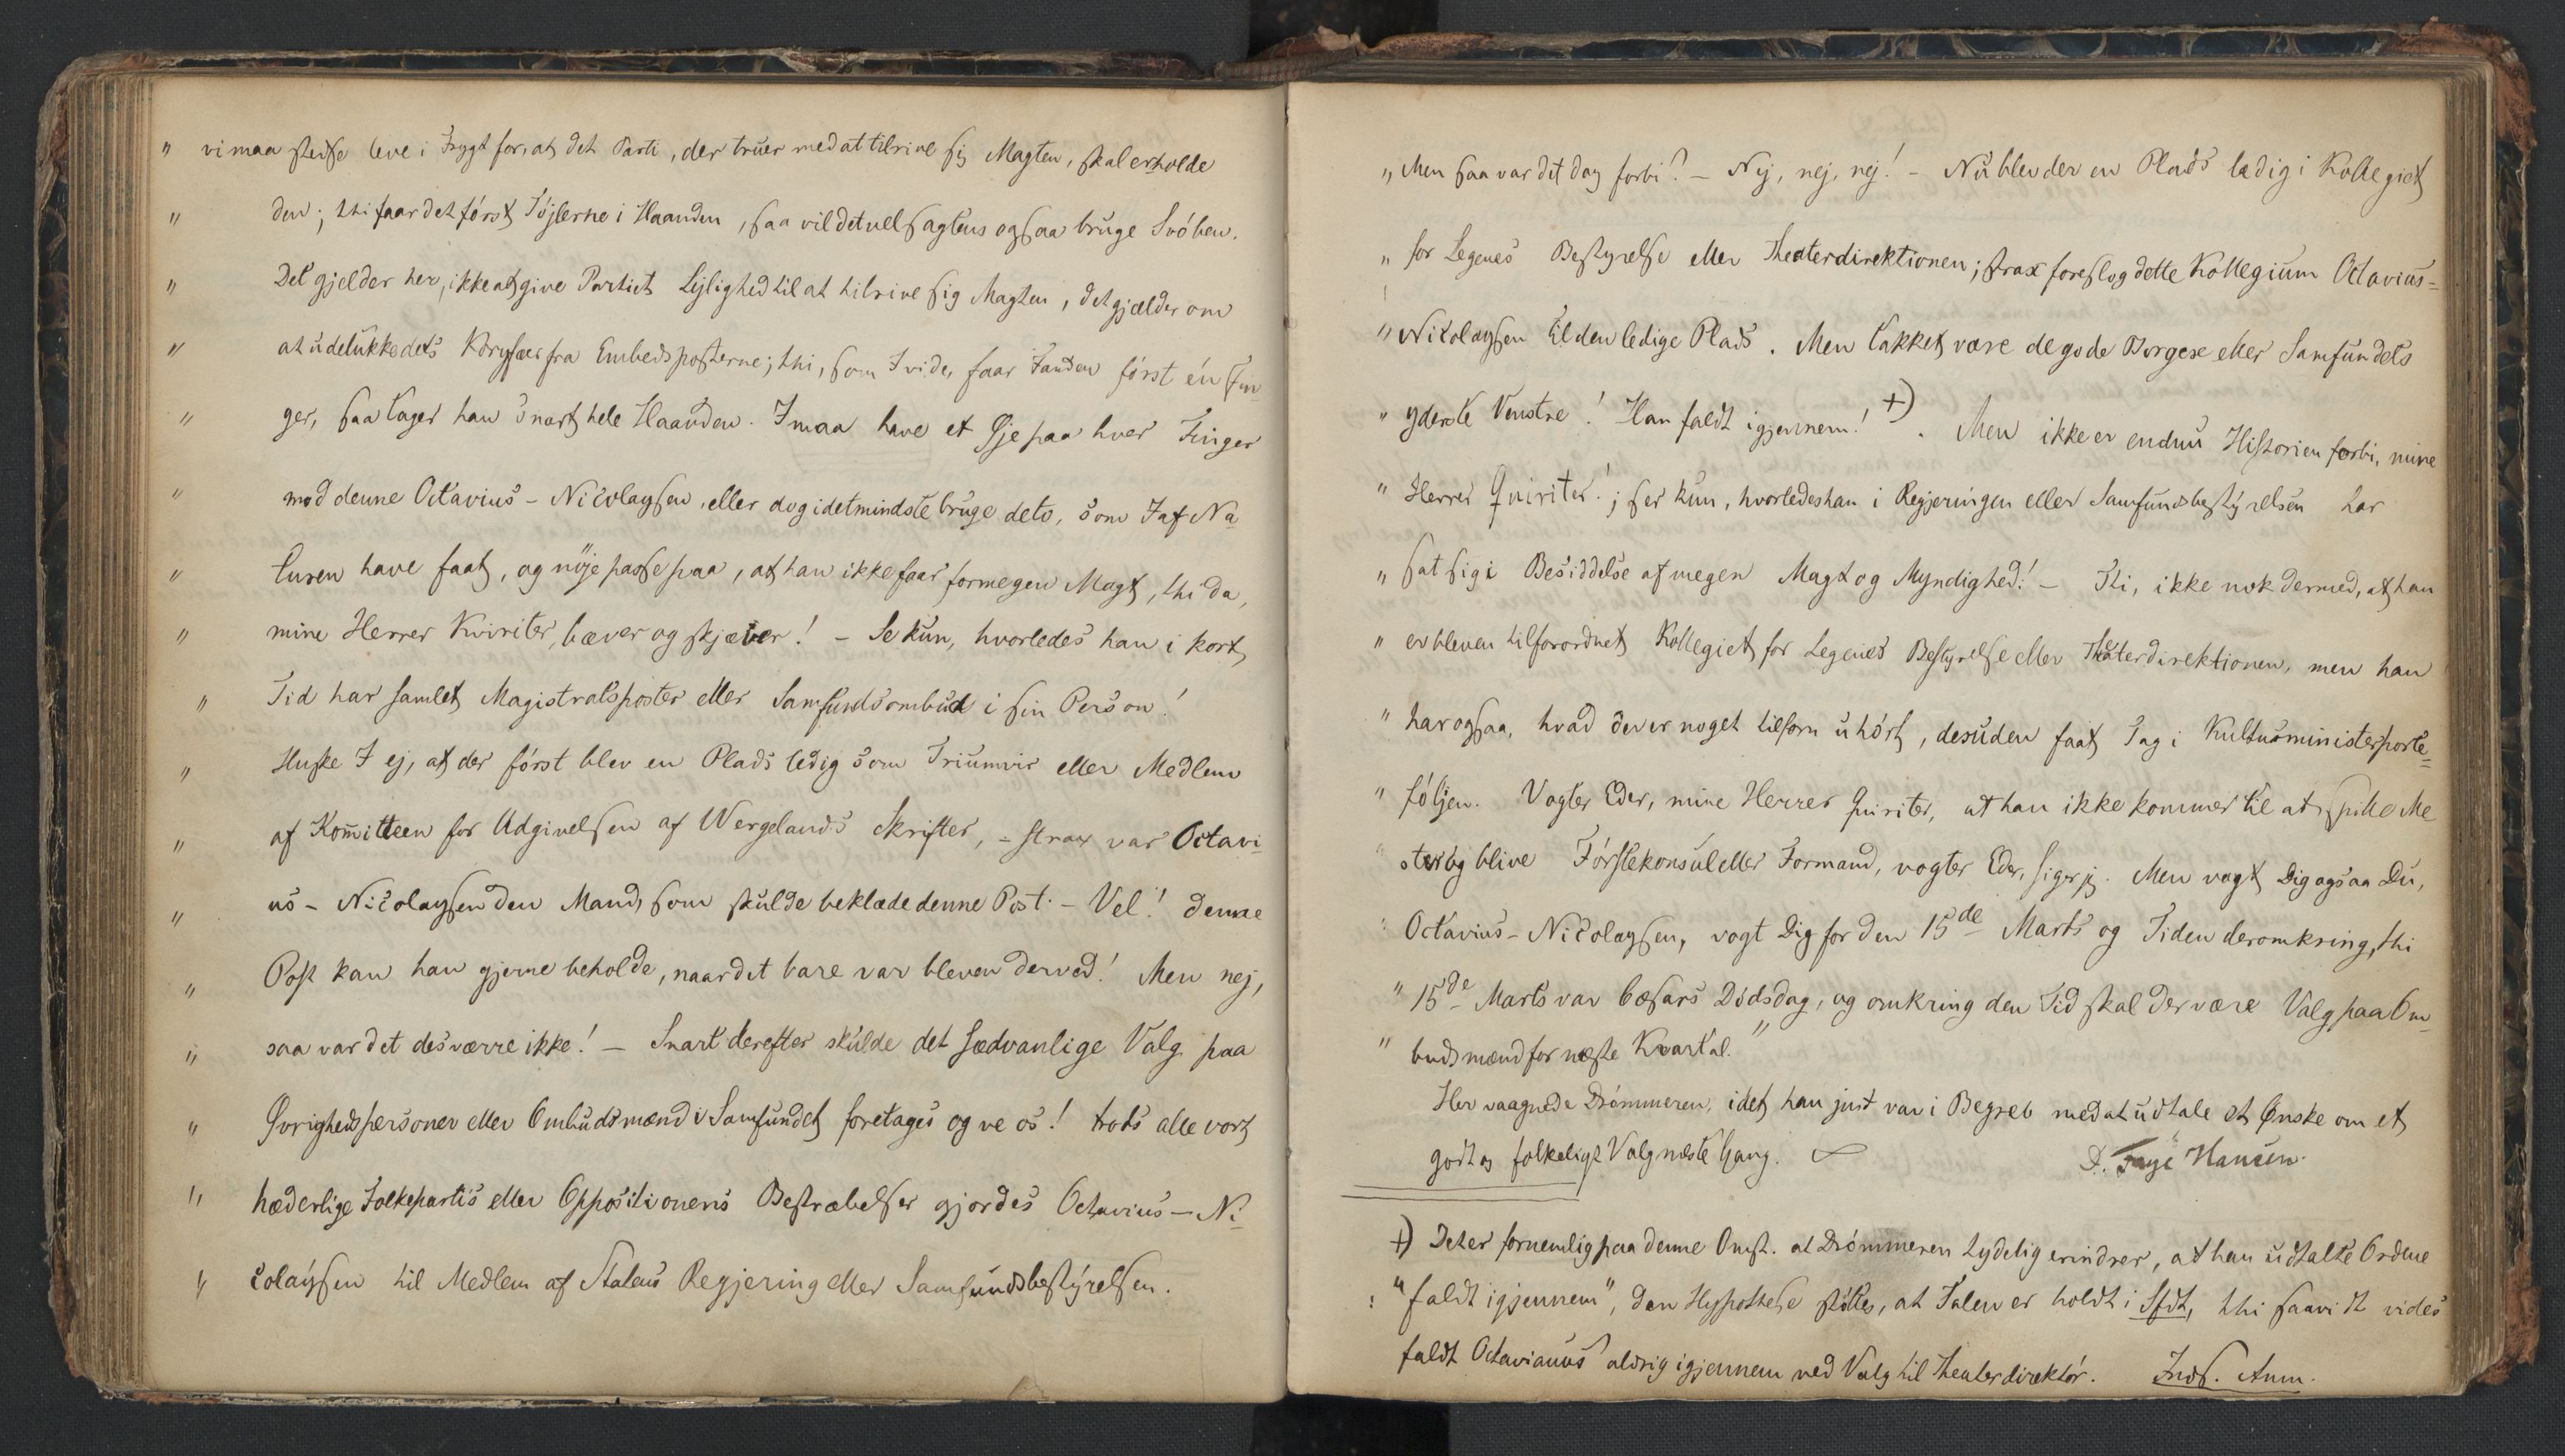 " vi maa stedse leve i Frygt for, at det Parti, der truer med at tilrive sig Magten, skal erholde
" den; thi faar det först Töjlerne i Haanden, saa vil det vel sagtens ogsaa bruge Svöben.
" Det gjelder her, ikke at give Partiet Lejlighed til at tilrive sig Magten, det gjælder om
" at udelukke dets Koryfæer fra Embedsposterne; thi, som I vide, faar Fanden först én Fin-
" ger, saa tager han snart hele Haanden. I maa have et Øje paa hver Finger
" mod denne Octavius-Nicolaysen, eller dog idetmindste bruge de to, som I af Na-
" turen have faat, og nöje passe paa, at han ikke faar formegen Magt, thi da,
" mine Herrer Kviriter, bæver og skjælver! – Se kun, hvorledes han i kort
" Tid har samlet Magistratsposter eller Samfundsombud i sin Person!
" Huske I ej, at der först blev en Plads ledig som Triumvir eller Medlem
" af Komitteen for Udgivelsen af Wergelands Skrifter, – strax var Octavi-
" us-Nicolaysen den Mand, som skulde beklæde denne Post. – Vel! denne
" Post kan han gjerne beholde, naar det bare var bleven derved! Men nej,
" saa var det desværre ikke! – Snart derefter skulde det sædvanlige Valg paa
" Øvrighedspersoner eller Ombudsmænd i Samfundet foretages og ve os! trods alle vort
" hæderlige Folkepartis eller Oppositionens Bestræbelser gjordes Octavius-Ni-
" colaysen til Medlem af Statens Regjering eller Samfundsbestyrelsen.
" Men saa var det dog forbi? – Nej, nej, nej! – Nu blev der en Plads ledig i Kollegiet
" for Legenes Bestyrelse eller Theaterdirektionen; strax foreslog dette Kollegium Octavius-
" Nicolaysen til den ledige Plads. Men takket være de gode Borgere eller Samfundets
" yderste Venstre! Han faldt igjennem! +). Men ikke er endnu Historien forbi, mine
" Herrer Quiriter!; ser kun, hvorledes han i Regjeringen eller Samfundsbestyrelsen har
" sat sig i Besiddelse af megen Magt og Myndighed! – Thi, ikke nok dermed, at han
" er bleven tilforordnet Kollegiet for Legenes Bestyrelse eller Theaterdirektionen, men han
" har ogsaa, hvad der er noget tilforn uhört, desuden faat Tag i Kultusministerporte-
" följen. Vogter Eder, mine Herrer Quiriter, at han ikke kommer til at spille Me-
" ster og blive Förstekonsul eller Formand, vogter Eder, siger jeg. Men vogt Dig ogsaa Du,
" Octavius-Nicolaysen, vogt Dig for den 15de Marts og Tiden deromkring, thi
" 15de Marts var Cæsars Dödsdag, og omkring den Tid skal der være Valg paa Om-
" budsmænd for næste Kvartal."
Her vaagnede Drömmeren, idet han just var i Begreb med at udtale et Ønske om et
godt og folkeligt Valg næste Gang.
D. Faye Hansen.
+) Det er fornemlig paa denne Omst. at Drömmeren tydelig erindrer, at han udtalte Ordene
: "faldt igjennem", den Hypothese støttes, at Talen er holdt i Sfdt, thi saavidt vides
faldt Octavianus aldrig igjennem ved Valg til Theaterdirektör. Inds. Anm.